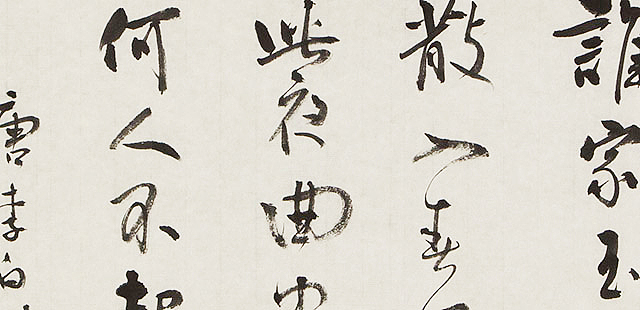 誰家玉
散入春
此夜曲中
何人不起
唐李白